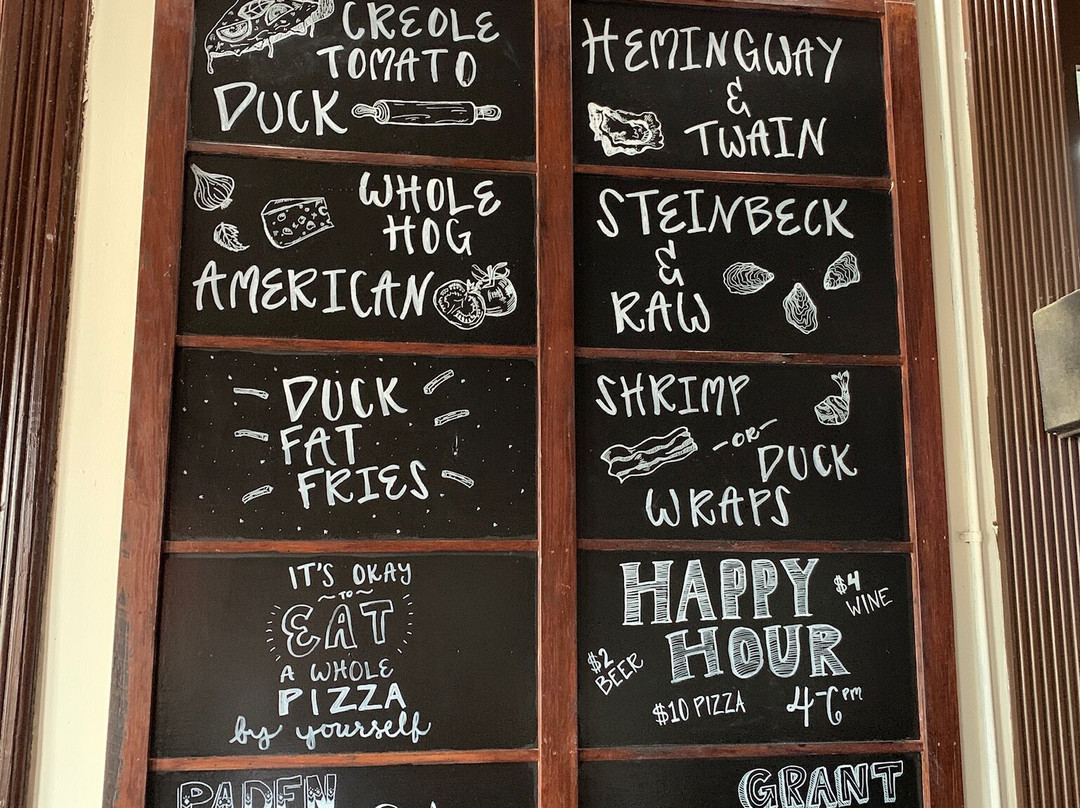 CREOLE
TOMATO
DUCK
WHOLE
HOG
AMERICAN
DUCK
FAT
FRIES
IT'S OKAY
~TO~
EAT
A WHOLE
PIZZA
by yourself
PADEN
HEMINGWAY
&
TWAIN
STEINBECK
&
RAW
SHRIMP
-OR-
DUCK
WRAPS
HAPPY
HOUR
$4
WINE
$2
BEER
$10 PIZZA
4-6pm
GRANT